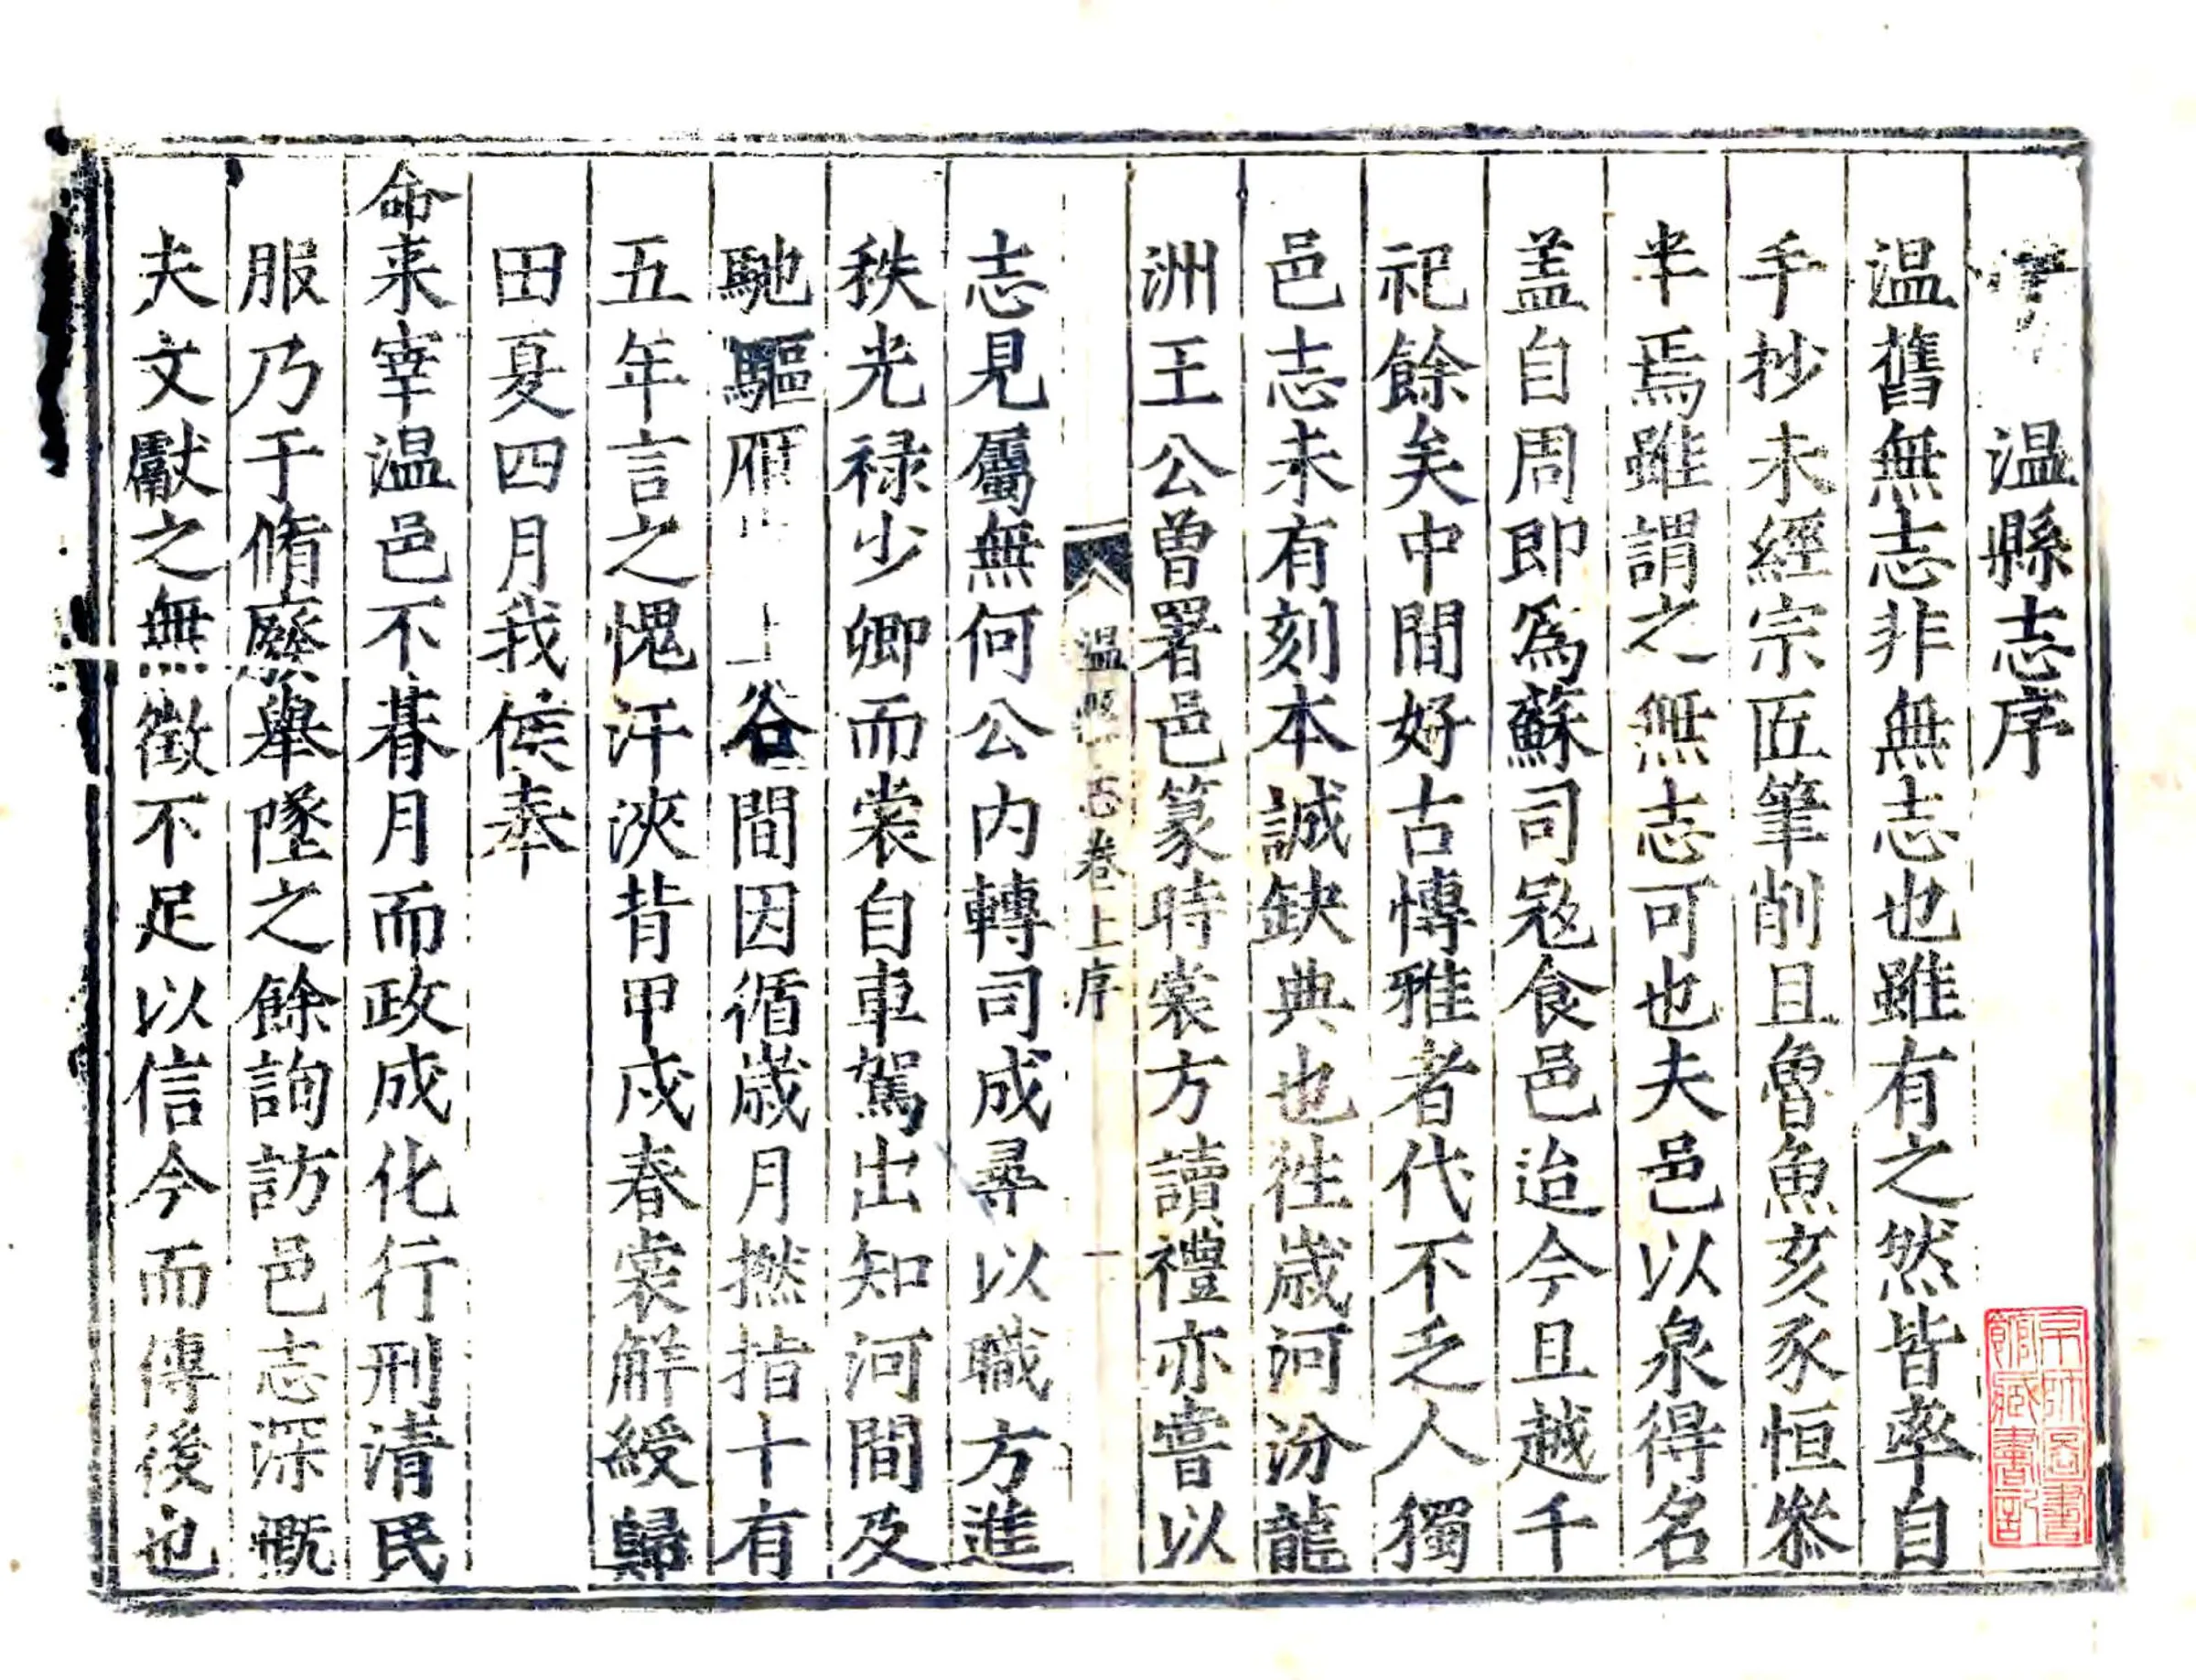 温縣志序
温舊無志非無志也雖有之然皆率自
手抄未經宗匠筆削且魯魚亥豕恒叅
半焉雖謂之無志可也夫邑以泉得名
盖自周即爲蘇司冦食邑迨今且越千
祀餘矣中間好古愽雅者代不乏人獨
邑志未有刻本誠缺典也徃歲河汾龍
洲王公曽署邑篆時裳方讀禮亦嘗以
温縣志卷上序
一
志見屬無何公内轉司成尋以職方進
秩光禄少卿而裳自車駕出知河間及
馳驅鴈 上谷間因循歲月撚指十有
五年言之愧汗浹背甲戌春裳解綬歸
田夏四月我侯奉
命来宰温邑不朞月而政成化行刑清民
服乃于脩廢舉墜之餘詢訪邑志深慨
夫文獻之無徵不足以信今而傳後也
京師圖書館藏書記